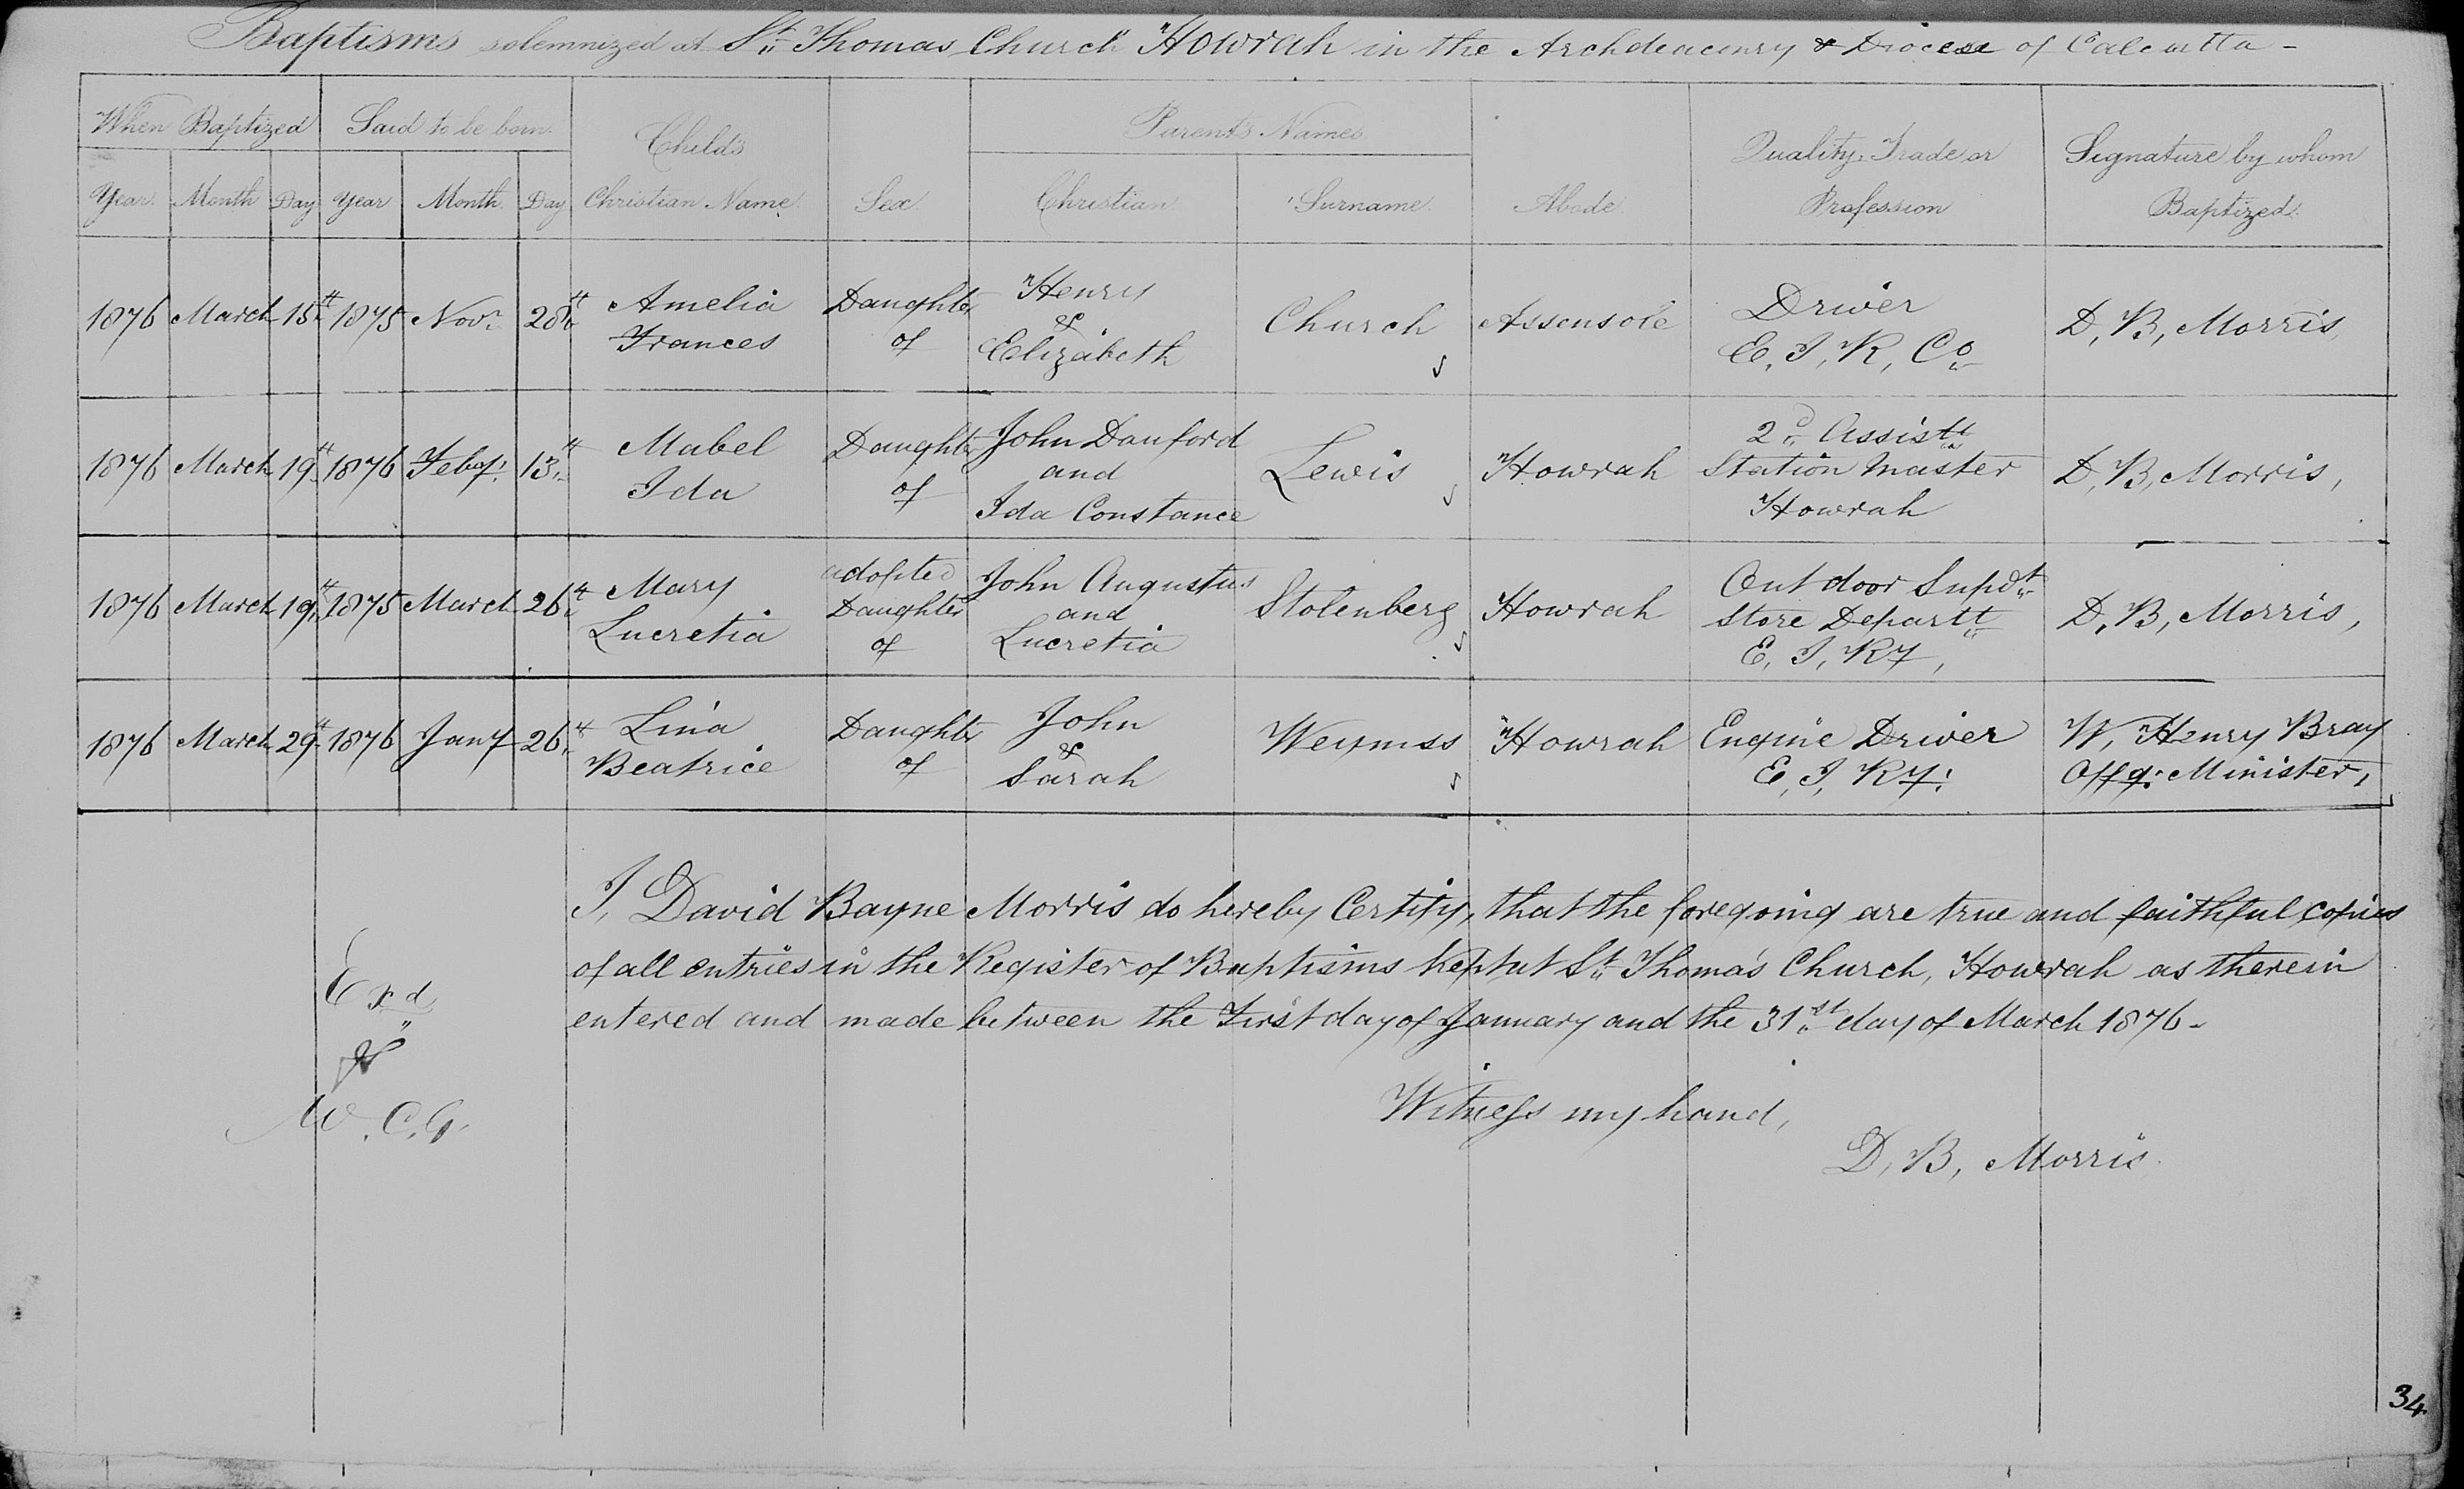 Baptisms solemnized at St. Thomas Church Howrah in the Archdeaconry & Diocese of Calcutta -
When Baptized Said to be born Child's Parents Names Quality, Trade or Signature by whom
Year Month Day Year Month Day Christian Name Sex Christian Surname Abode Profession Baptized
1876 March 15th 1875 Novr 28th Amelia Frances Daughter of Henry & Elizabeth Church Assensole Driver E, I, R, Co D, B, Morris,
1876 March 19th 1876 Feby: 13th Mabel Ida Daughter of John Danford and Ida Constance Lewis Howrah 2d Assistt Station Master Howrah D, B, Morris,
1876 March 19th 1875 March 26th Mary Lucretia adopted Daughter of John Augustus and Lucretia Stolenberg Howrah Out door Supdt Store Departt E, I, Ry, D, B, Morris,
1876 March 29th 1876 Jany 26th Lina Beatrice Daughter of John & Sarah Weymss Howrah Engine Driver E, I, Ry: W, Henry Bray Offg: Minister,
I, David Bayne Morris do hereby Certify, that the foregoing are true and faithful copies
of all entries in the Register of Baptisms kept at St. Thomas's Church, Howrah as therein
entered and made between the First day of January and the 31st day of March 1876 -
Exd
W. C. G.
Witness my hand,
D, B, Morris
34